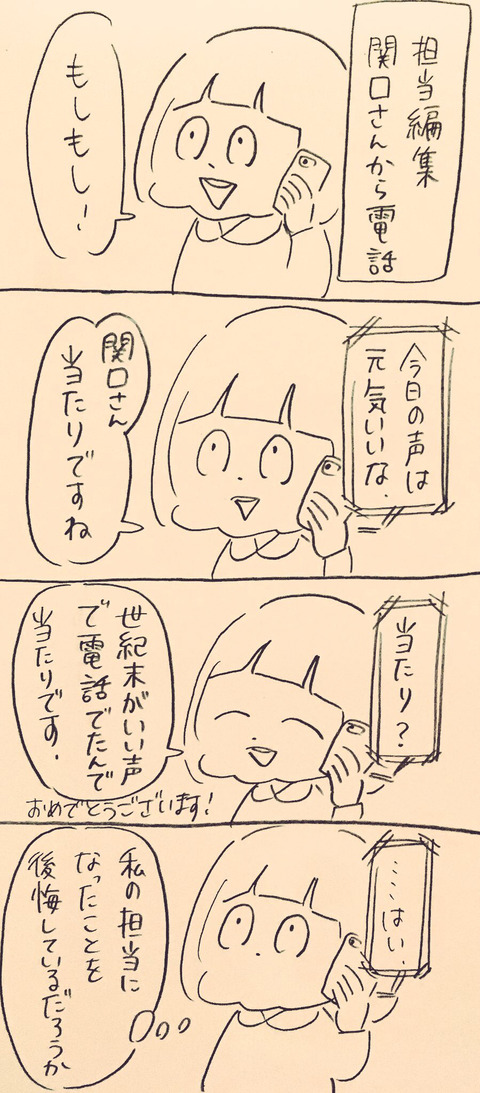 担当編集
関口さんから電話
もしもし!
今日の声は
元気いいな.
関口さん
当たりですね
当たり?
世紀末がいい声
で電話でたんで
当たりです.
おめでとうございます!
…はい.
私の担当に
なったことを
後悔しているだろうか